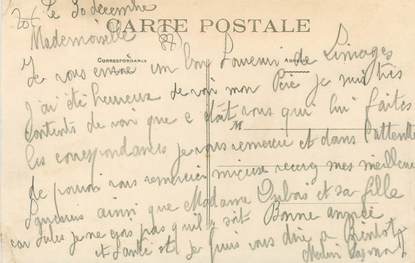 le 30 décembre
CARTE POSTALE
Mademoiselle (87)
CORRESPONDANCE
Je vous envoie un bon Souvenir de Limoges
J'ai été heureux de voir mon Père je suis très
contents de voir que c'était vous qui lui faites
M
les correspondances je vous remercie et dans l'attente
de pouvoir vous remercier mieux recevez mes meilleurs
ainsi que Madame Dubois et sa fille
je ne pas qu'il soit Bonne année
et Santé et je puis vous dire a Bientôt